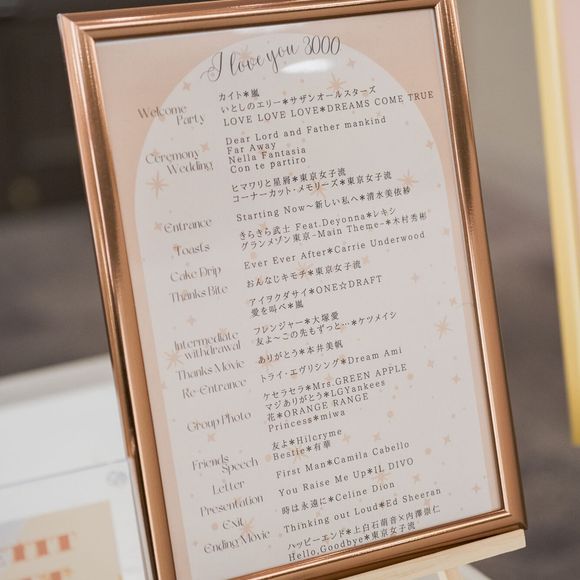 I love you 3000
Welcome Party
カイト*嵐
いとしのエリー*サザンオールスターズ
LOVE LOVE LOVE*DREAMS COME TRUE
Ceremony Wedding
Dear Lord and Father mankind
Far Away
Nella Fantasia
Con te partiro
ヒマワリと星屑*東京女子流
コーナーカット・メモリーズ*東京女子流
Entrance
Starting Now～新しい私へ*清水美依紗
Toasts
きらきら武士 Feat.Deyonna*レキシ
グランメゾン東京-Main Theme-*木村秀彬
Cake Drip
Ever Ever After*Carrie Underwood
Thanks Bite
おんなじキモチ*東京女子流
アイヲクダサイ*ONE☆DRAFT
愛を叫べ*嵐
Intermediate withdrawal
フレンジャー*大塚愛
友よ～この先もずっと…*ケツメイシ
Thanks Movie
ありがとう*本井美帆
Re-Entrance
トライ・エヴリシング*Dream Ami
ケセラセラ*Mrs.GREEN APPLE
マジありがとう*LGYankees
Group Photo
花*ORANGE RANGE
Princess*miwa
友よ*Hilcryme
Friends Speech
Bestie*有華
Letter
First Man*Camila Cabello
Presentation
You Raise Me Up*IL DIVO
時は永遠に*Celine Dion
Exit
Thinking out Loud*Ed Sheeran
Ending Movie
ハッピーエンド*上白石萌音×内澤崇仁
Hello,Goodbye*東京女子流